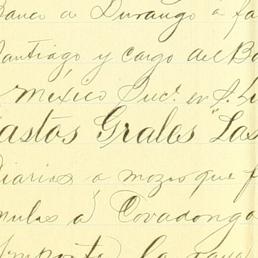 Banco de Durango a fa
Santiago y cargo del Ba
México Suc. en S. Lu
Gastos Grales "Las
Diarios a mozos que f
mulas a Covadonga
Importe la raya